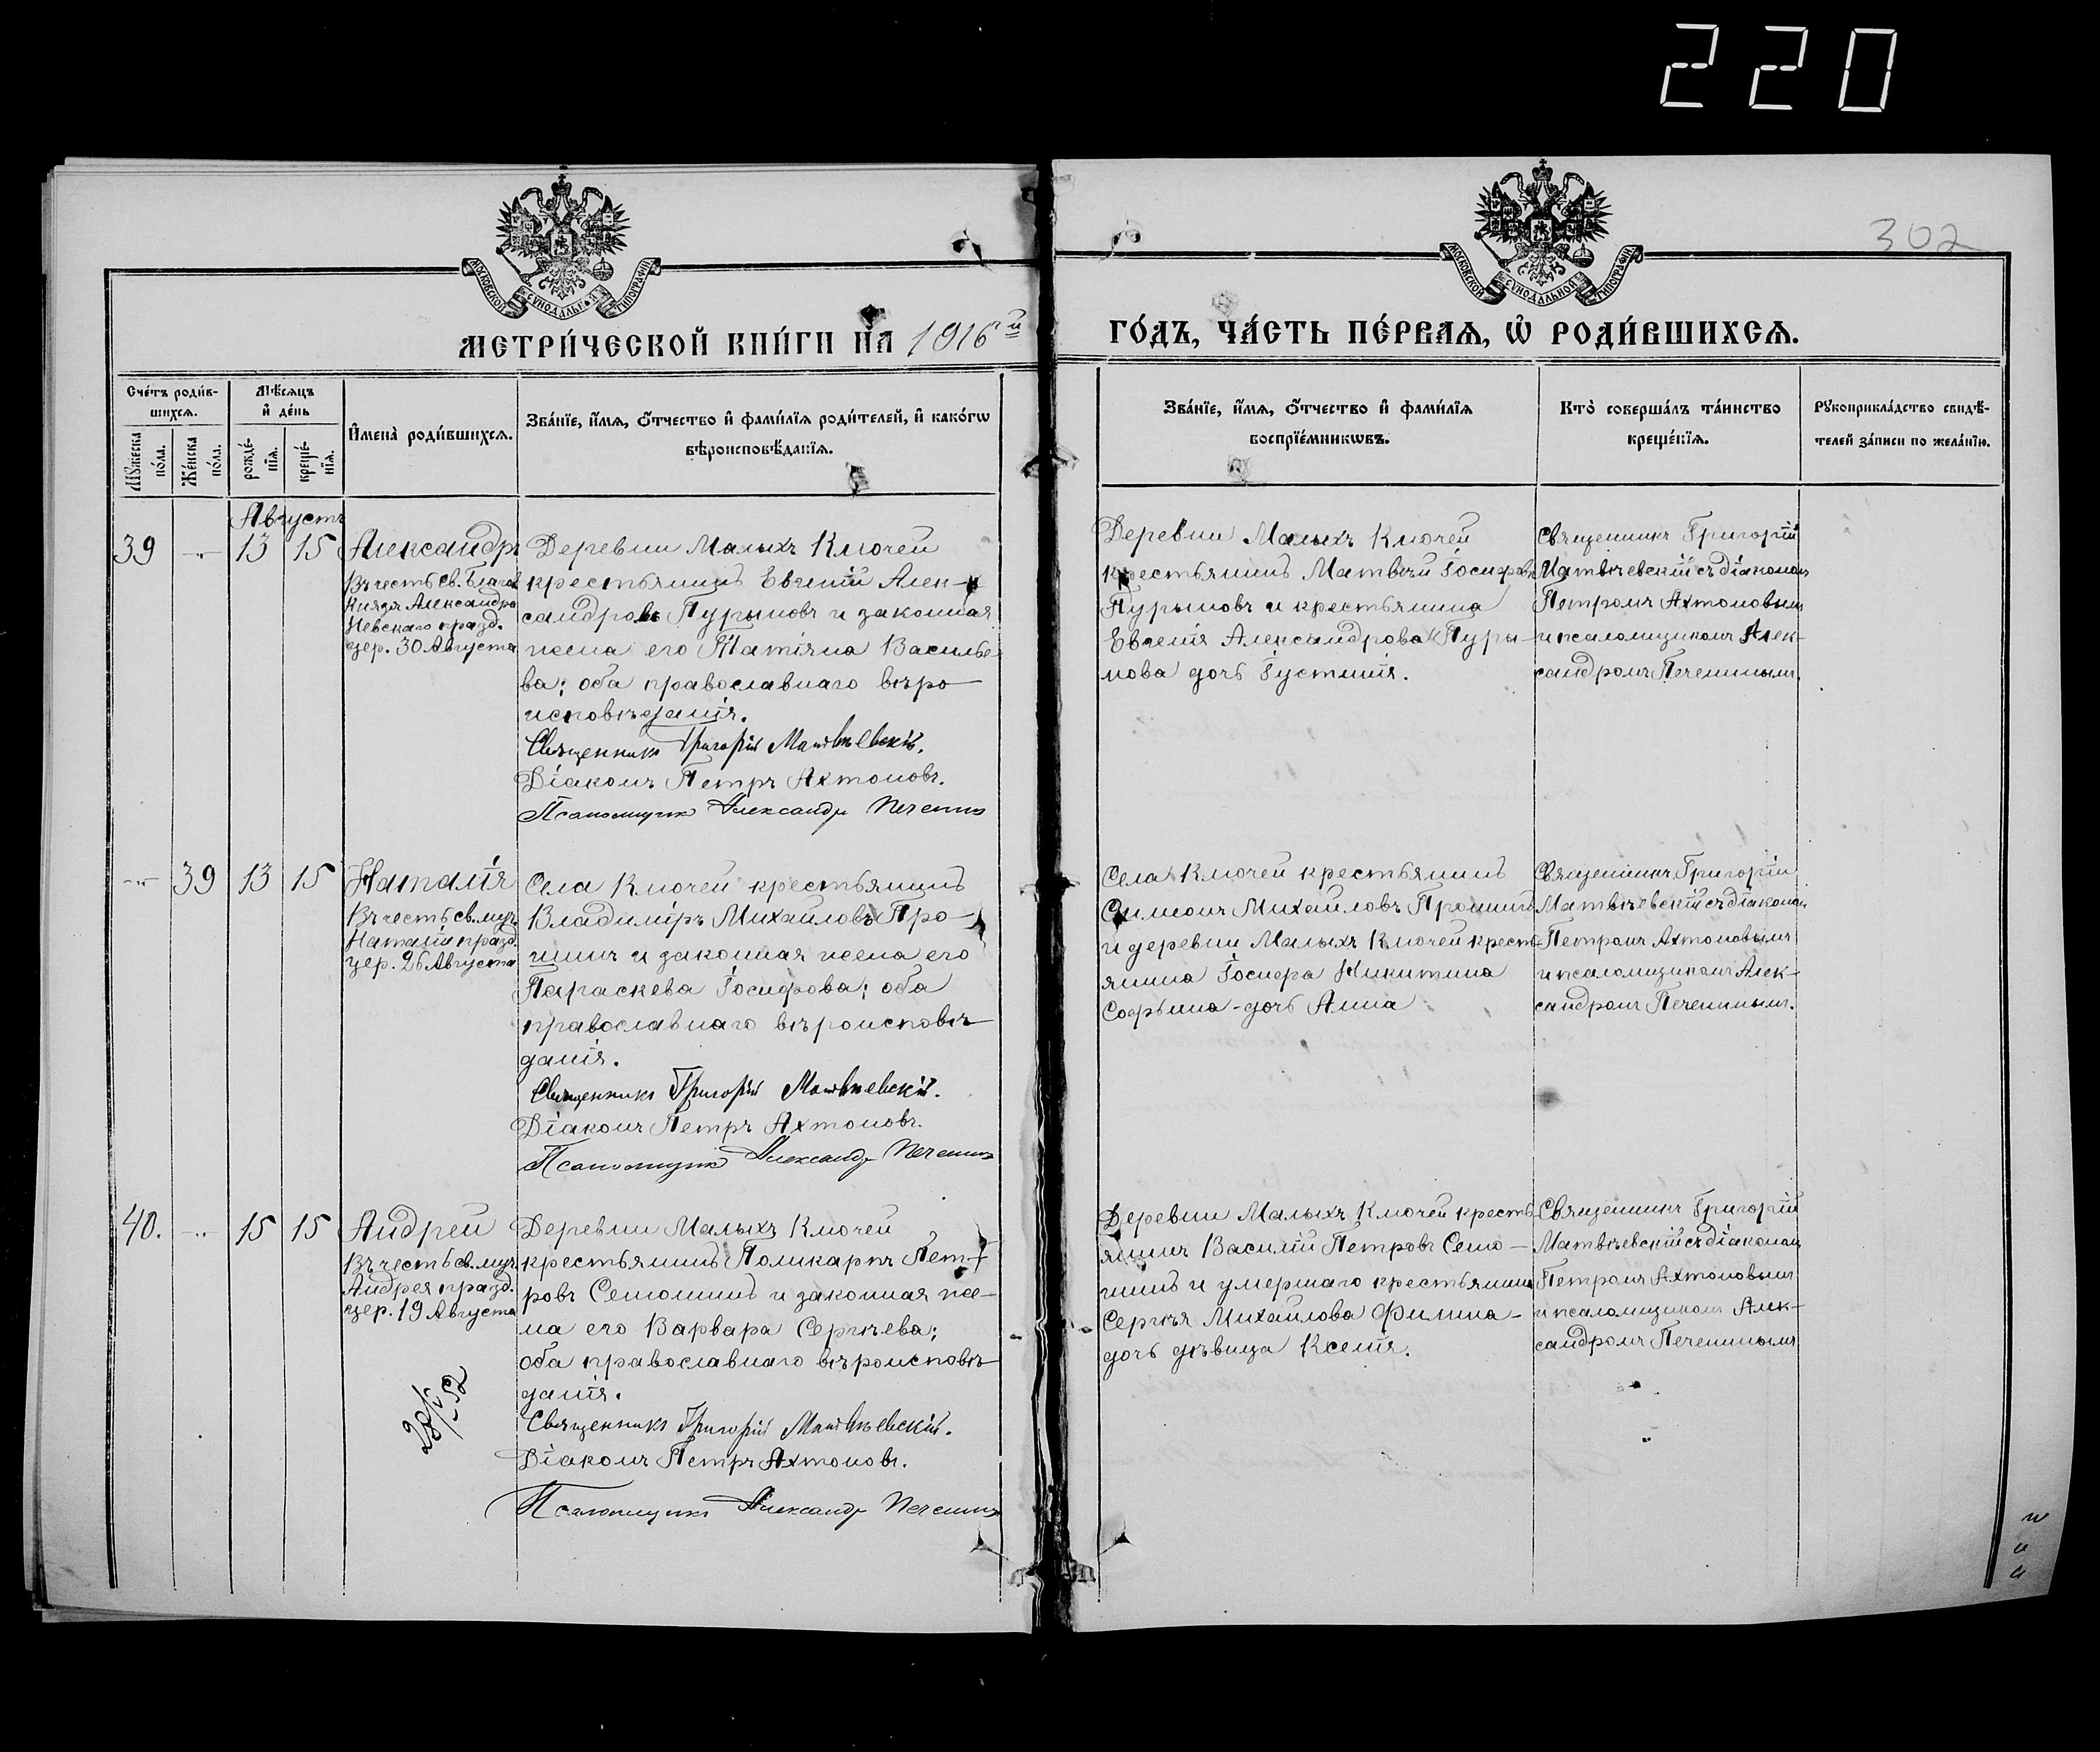 220
302
МОСКОВСКОЙ СѴНОДАЛЬНОЙ ТИПОГРАФІИ
МОСКОВСКОЙ СѴНОДАЛЬНОЙ ТИПОГРАФІИ
МЕТРИ́ЧЕСКОЙ КНИ́ГИ НА 1916й
ГО́ДЪ, ЧА́СТЬ ПЕ́РВАЯ, Ѡ҆ РОДИ́ВШИХСЯ.
Сче́тъ роди́в-
шихся.
Мꙋжеска по́ла.
Же́нска по́ла.
Мѣ́сяцъ
и҆ де́нь
рожде́-
нїя.
креще́-
нїя.
И҆мена̀ роди́вшихся.
Зва́нїе, и҆́мя, ѻ҆́тчество и҆ фами́лїя роди́телей, и҆ како́гѡ
вѣроисповѣ́данїя.
Зва́нїе, и҆́мя, ѻ҆́тчество и҆ фами́лїя
воспрїе́мникѡвъ.
Кто̀ соверша́лъ та́инство
креще́нїя.
Рꙋкоприкла́дство свидѣ́-
телей за́писи по жела́нїю.
Августъ
39 -"- 13 15 Александръ
Въ честь св. Благов.
Князя Александра
Невскаго празд.
цер. 30 Августа
Деревни Малыхъ Ключей
крестьянинъ Евгеній Алек-
сандровъ Пурыновъ и законная
жена его Татіана Василье-
ва; оба православнаго вѣро-
исповѣданія.
Священникъ Григорій Матвѣевскій.
Діаконъ Петръ Ахтоновъ.
Псаломщикъ Александръ Печенинъ
Деревни Малыхъ Ключей
крестьянинъ Матвѣй Іосифовъ
Пурыновъ и крестьянина
Евгенія Александрова Пуры-
нова дочь Іустинія.
Священникъ Григорій
Матвѣевскій съ діакономъ
Петромъ Ахтоновымъ
и псаломщикомъ Алек-
сандромъ Печенинымъ.
-"- 39 13 15 Наталія
Въ честь св. муч.
Наталіи празд.
цер. 26 Августа
Села Ключей крестьянинъ
Владиміръ Михайловъ Про-
нинъ и законная жена его
Параскева Іосифова; оба
православнаго вѣроисповѣ-
данія.
Священникъ Григорій Матвѣевскій.
Діаконъ Петръ Ахтоновъ.
Псаломщикъ Александръ Печенинъ
Села Ключей крестьянинъ
Симеонъ Михайловъ Пронинъ
и деревни Малыхъ Ключей кресть-
янина Іосифа Никитина
Софьина - дочь Анна
Священникъ Григорій
Матвѣевскій съ діакономъ
Петромъ Ахтоновымъ
и псаломщикомъ Алек-
сандромъ Печенинымъ.
40. -"- 15 15 Андрей
Въ честь св. муч.
Андрея празд.
цер. 19 Августа
Деревни Малыхъ Ключей
крестьянинъ Поликарпъ Пет-
ровъ Сетонинъ и законная же-
на его Варвара Сергѣева;
оба православнаго вѣроисповѣ-
данія.
Священникъ Григорій Матвѣевскій.
Діаконъ Петръ Ахтоновъ.
Псаломщикъ Александръ Печенинъ
Деревни Малыхъ Ключей кресть-
янинъ Василій Петровъ Сето-
нинъ и умершаго крестьянина
Сергѣя Михайлова Филина -
дочь дѣвица Ксенія.
Священникъ Григорій
Матвѣевскій съ діакономъ
Петромъ Ахтоновымъ
и псаломщикомъ Алек-
сандромъ Печенинымъ